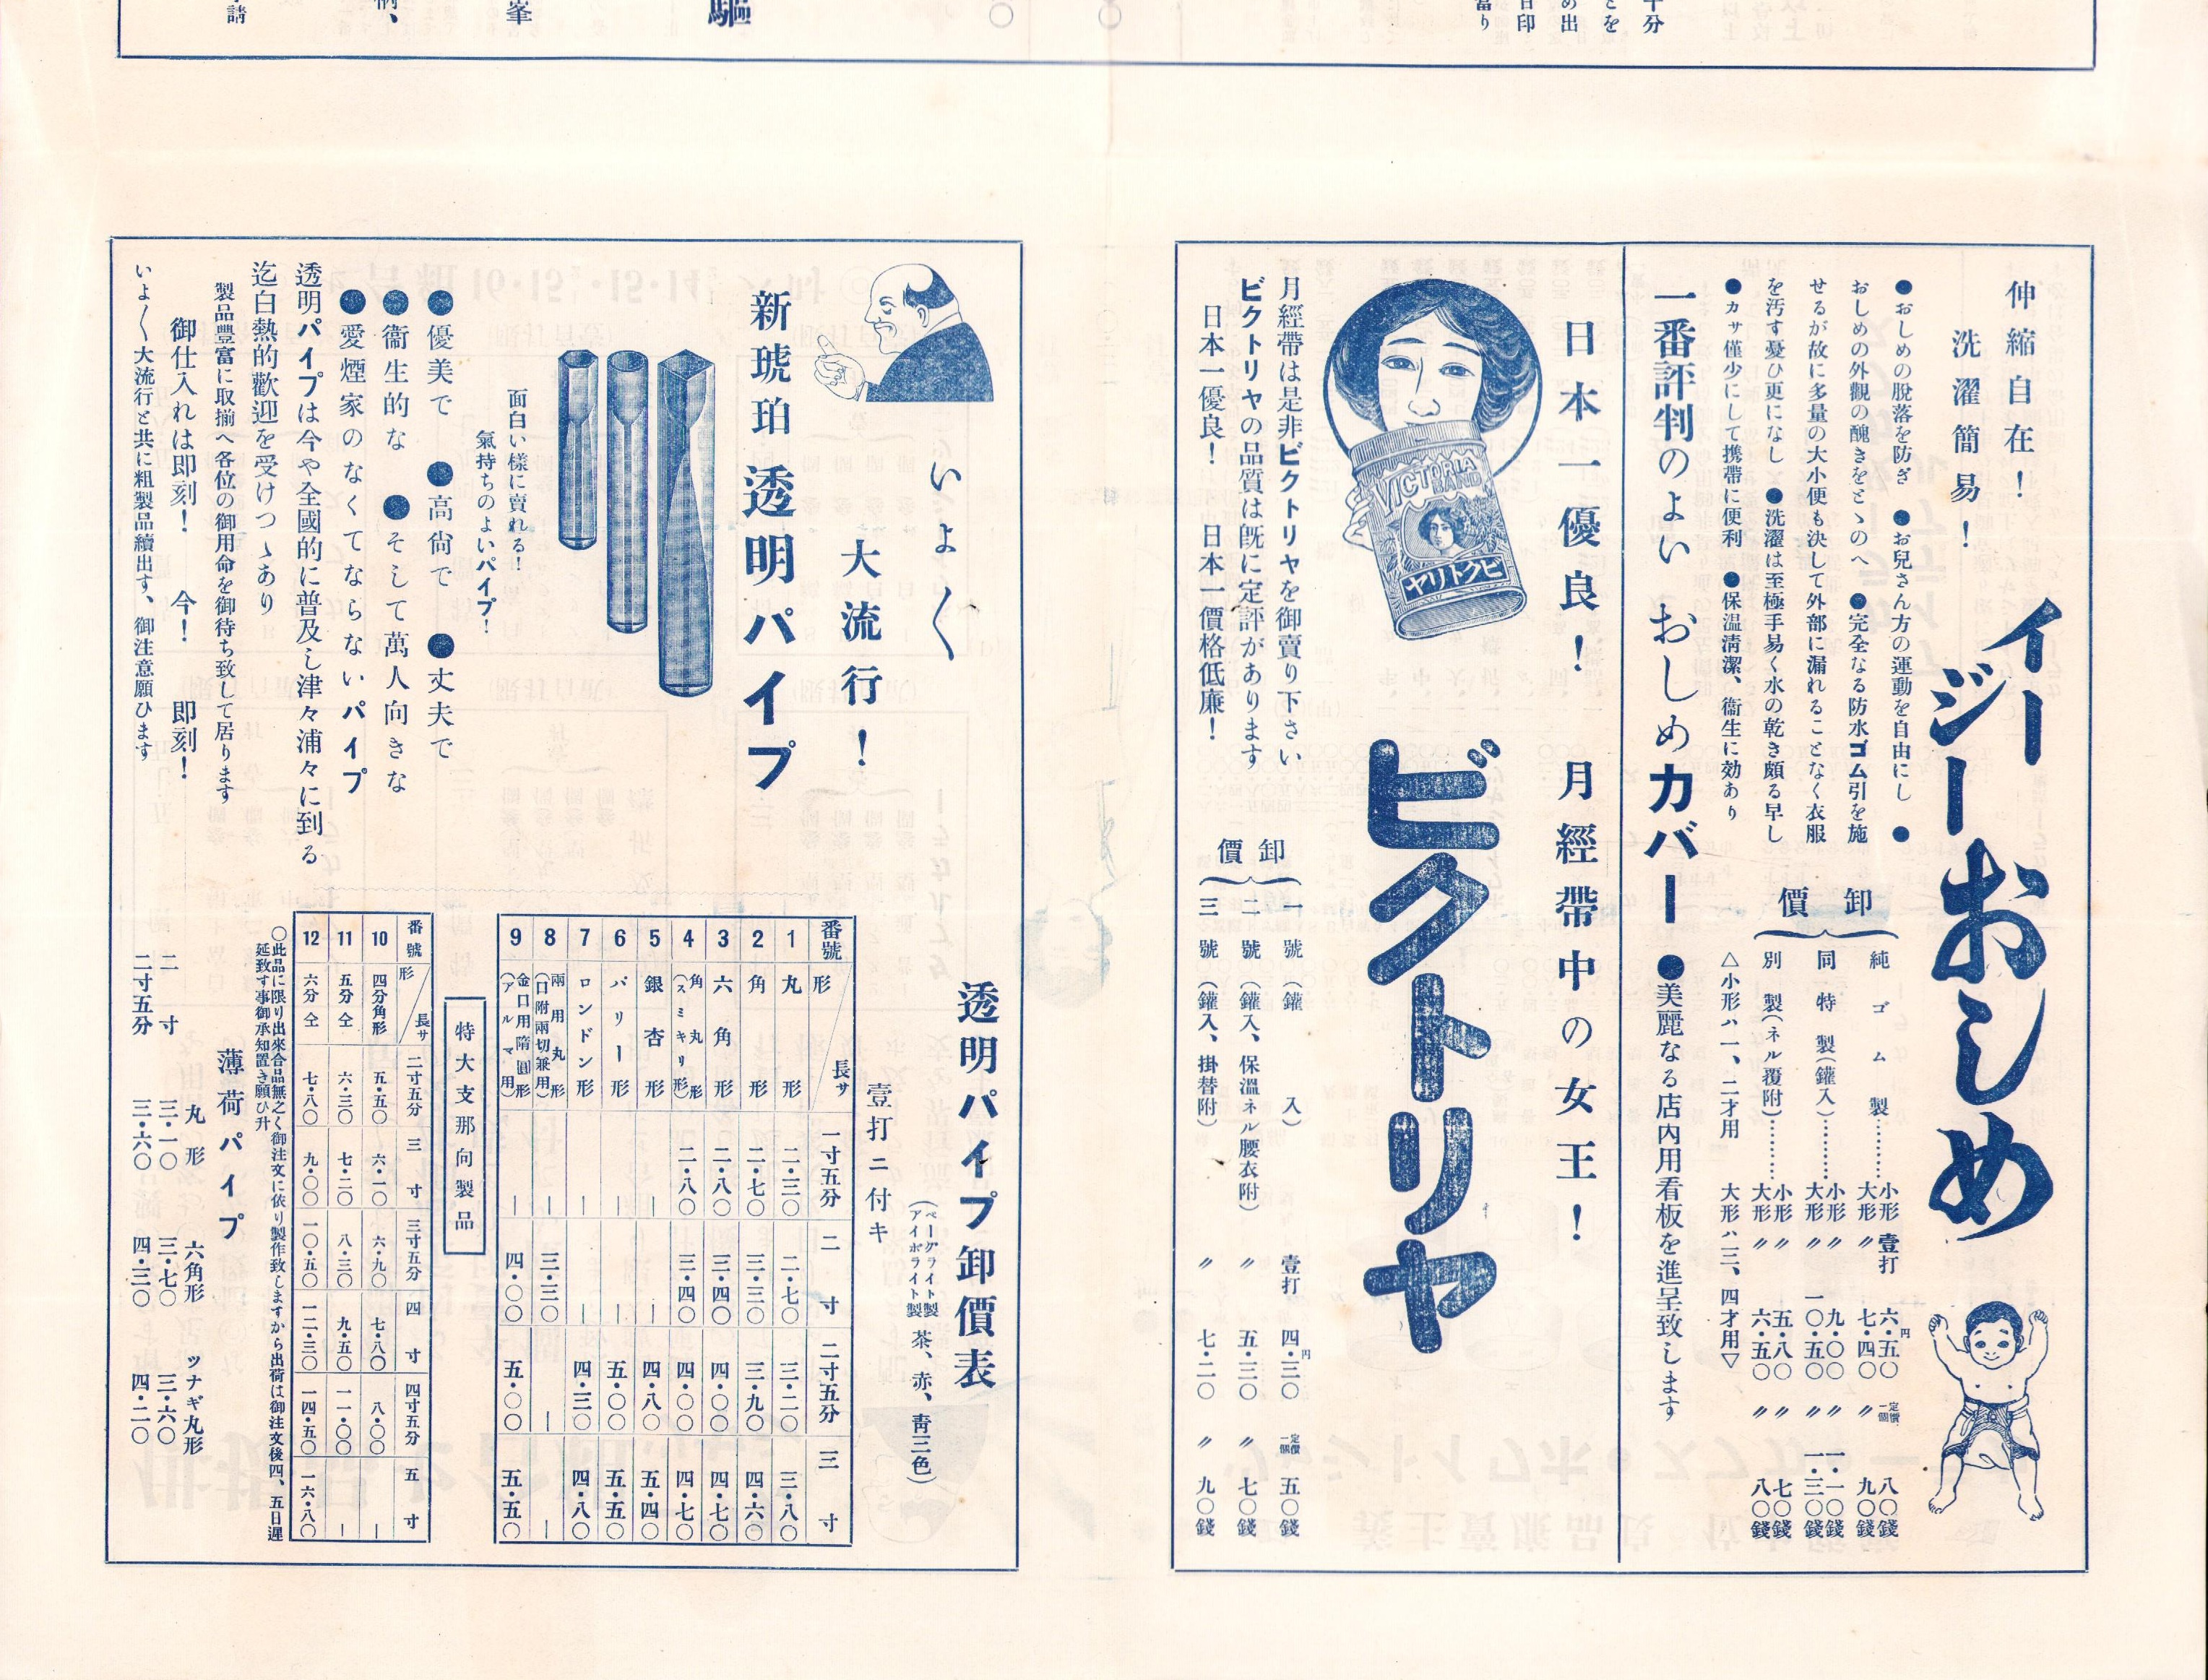 十分
とを
め出
日印
當り
驅
峯
請
イージーおしめ
伸縮自在!
洗濯簡易!
●おしめの脱落を防ぎ ●お兒さん方の運動を自由にし ●
おしめの外觀の醜きをとゝのへ ●完全なる防水ゴム引を施
せるが故に多量の大小便も決して外部に漏れることなく衣服
を汚す憂ひ更になし ●洗濯は至極手易く水の乾き頗る早し
●カサ僅少にして携帶に便利 ●保温清潔、衞生に効あり
卸價
純ゴム製………小形 壹打 六・五〇円 定價一個 八〇錢
大形 〃 七・四〇 〃 九〇錢
同特製(鑵入)………小形 〃 九・〇〇 〃 一・一〇
大形 〃 一〇・五〇 〃 一・三〇
別製(ネル覆附)………小形 〃 五・八〇 〃 七〇錢
大形 〃 六・五〇 〃 八〇錢
△小形ハ一、二才用 大形ハ三、四才用▽
一番評判のよいおしめカバー ●美麗なる店内用看板を進呈致します
日本一優良! 月經帶中の女王!
VICTORIA
BAND
ビクトリヤ
ビクトリヤ
月經帶は是非ビクトリヤを御賣り下さい
ビクトリヤの品質は既に定評があります
日本一優良! 日本一價格低廉!
卸價
一號(鑵入) 壹打 四・三〇円 定價一個 五〇錢
二號(鑵入、保温ネル腰衣附) 〃 五・三〇 〃 七〇錢
三號(鑵入、掛替附) 〃 七・二〇 〃 九〇錢
いよ〱
大流行!
新琥珀透明パイプ
面白い樣に賣れる!
氣持ちのよいパイプ!
●優美で ●高尙で ●丈夫で
●衞生的な ●そして萬人向きな
●愛煙家のなくてならないパイプ
透明パイプは今や全國的に普及し津々浦々に到る
迄白熱的歡迎を受けつゝあり
製品豐富に取揃へ各位の御用命を御待ち致して居ります
御仕入れは即刻! 今! 即刻!
いよ〱大流行と共に粗製品續出す、御注意願ひます
透明パイプ卸價表
(ベークライト製
アイボライト製 茶、赤、靑三色)
壹打ニ付キ
番號 形 長サ 一寸五分 二寸 二寸五分 三寸
1 丸形 二・三〇 二・七〇 三・二〇 三・八〇
2 角形 二・七〇 三・三〇 三・九〇 四・六〇
3 六角形 二・八〇 三・四〇 四・〇〇 四・七〇
4 角丸形(スミキリ形) 二・八〇 三・四〇 四・〇〇 四・七〇
5 銀杏形 — — 四・八〇 五・四〇
6 パリー形 — — 五・〇〇 五・五〇
7 ロンドン形 — — 四・三〇 四・八〇
8 兩用丸形(口附兩切兼用) — 三・三〇 — —
9 金口用隋圓形(アルマ用) — 四・〇〇 五・〇〇 五・五〇
特大支那向製品
番號 形 長サ 二寸五分 三寸 三寸五分 四寸 四寸五分 五寸
10 四分角形 五・五〇 六・一〇 六・九〇 七・八〇 八・〇〇 —
11 五分仝 六・三〇 七・二〇 八・三〇 九・五〇 一一・〇〇 —
12 六分仝 七・八〇 九・〇〇 一〇・五〇 一二・三〇 一四・五〇 一六・八〇
〇此品に限り出來合品無之く御注文に依り製作致しますから出荷は御注文後四、五日遲
延致す事御承知置き願ひ升
薄荷パイプ
丸形 六角形 ツナギ丸形
二寸 三・一〇 三・七〇 三・六〇
二寸五分 三・六〇 四・三〇 四・二〇